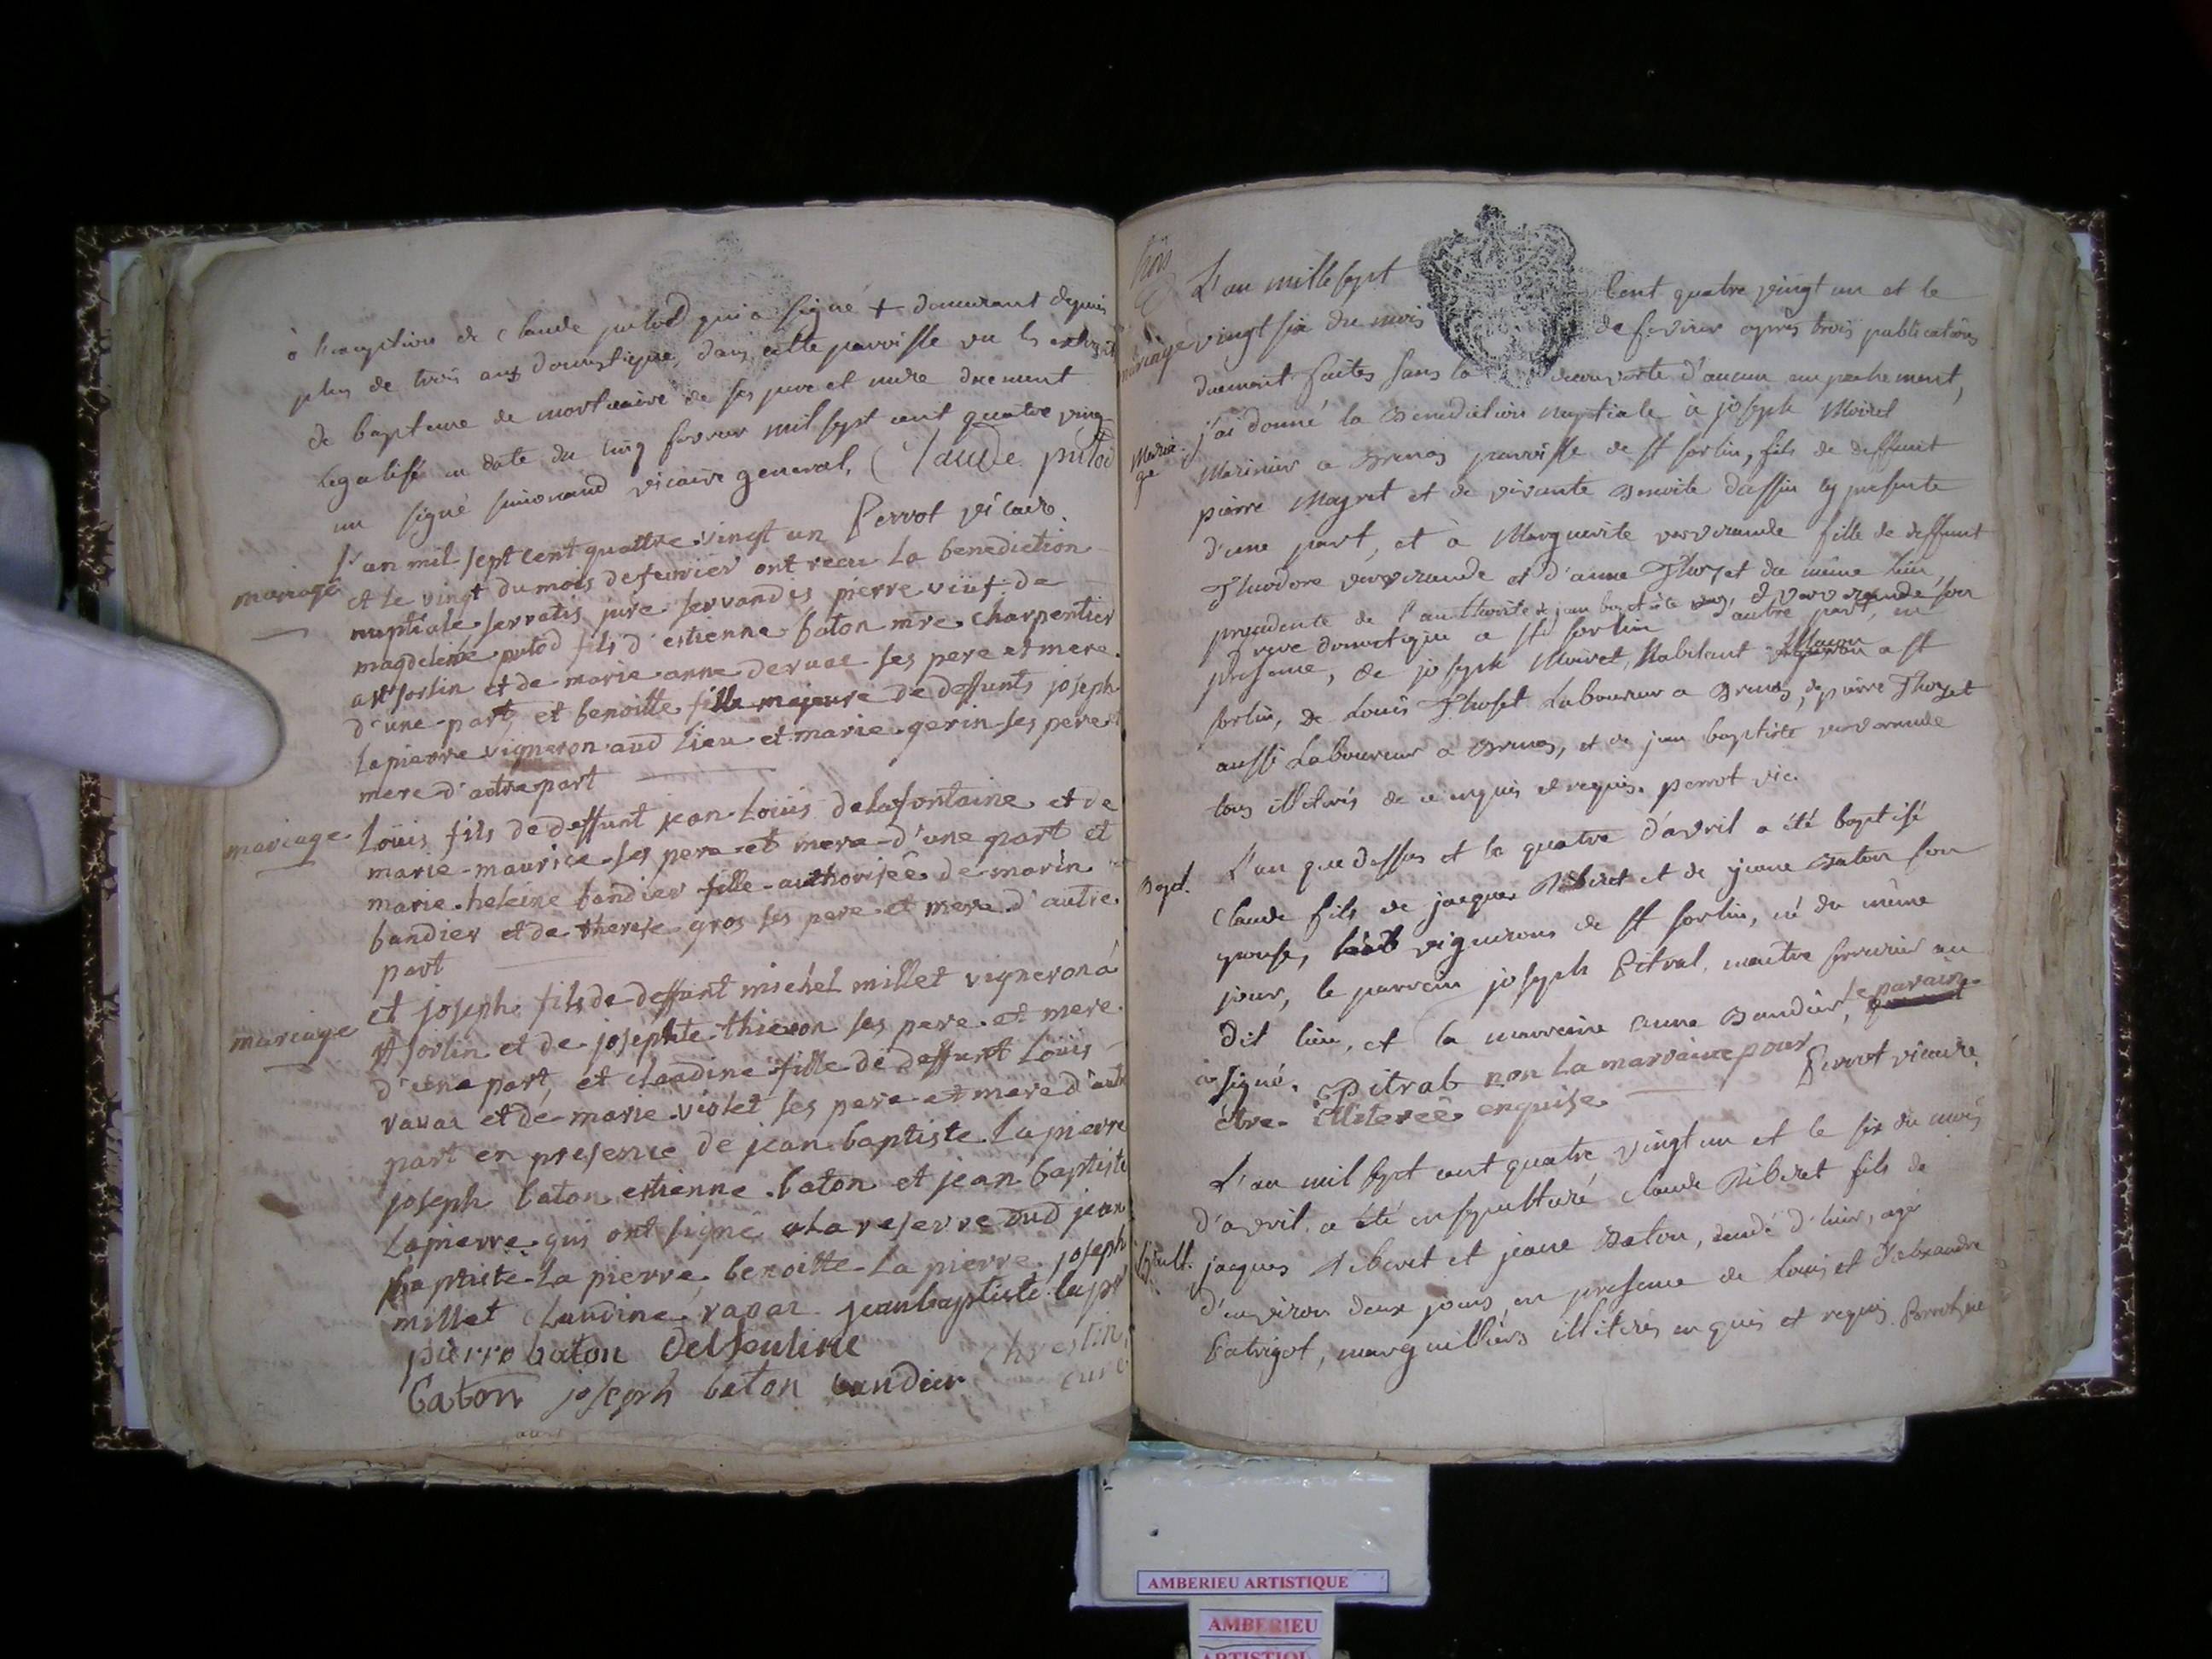 à l'exception de Claude putod qui a signé + demeurant depuis
plus de trois ans domestique, dans cette paroisse vu les extrait
de bapteme de mortuaire de ses pere et mere duement
legalisé en date du cinq fevrier mil sept cent quatre ving
un signé vicaire general, Claude putod
Perrot vicaire.
mariage
l'an mil sept cent quattre vingt un
et le vingt du mois de fevrier ont recu la benediction
nuptiale servatis jure servandis pierre viuf de
magdeleine putod fils d'estienne baton mre charpentier
a st sorlin et de marie anne deruae ses pere et mere
d'une part, et benoitte fille majeure de deffunts joseph
lapierre vigneron aud lieu et marie gerin ses pere et
mere d'autre part
mariage
Louis fils de deffunt jean Louis delafontaine et de
marie maurice ses pere et mere d'une part et
marie heleine bandier fille authorisée de marin
bandier et de therese gros ses pere et mere d'autre
part
mariage
et joseph fils de deffunt michel millet vigneron a
st sorlin et de josephte thieron ses pere et mere
d'une part, et claudine fille de deffunt Louis
ravar et de marie violet ses pere et mere d'autr
part en presence de jean baptiste Lapierre
joseph baton estienne baton et jean baptiste
Lapierre qui ont signé a la reserve dud jean
baptiste La pierre, benoitte La pierre joseph
millet Claudine ravar jean baptiste lapr
pierre baton
baton joseph baton bandier
curé
L'an mille sept cent quatre vingt un et le
mariage
vingt six du mois de fevrier après trois publications
duement faites sans la decouverte d'aucun empechement,
Maria
ge
j'ai donné la Benediction nuptiale à joseph Moiret
Marinier a Brenas paroisse de st sorlin, fils de deffunt
pierre Mayret et de vivante Benoite dassin icy presente
d'une part, et à Marguerite ververande fille de deffunt
Theodore ververande et d'anne Thozet du même lieu
precedente de l'authorité de jean baptiste ververande son
frere domestique a st sorlin d'autre part, en
presence, de joseph Moiret, habitant a st
sorlin, de Louis Thoset Laboureur a Brenas, de pierre Thozet
aussi Laboureur a Brenas, et de jean baptiste ververande
tous illiterés de ce enquis et requis. perrot vic.
Bapt.
L'an que dessus et le quatre d'avril a été baptisé
Claude fils de jacques Riberet et de jeane Baton son
epouse, vignerons de st sorlin, né du même
jour, le parrein joseph Pitral, maitre serrurier au
dit lieu, et la marreine anne Bandier, le parain
a signé. Pitrab non la marraine pour Perrot vicaire
être illiterée enquise
L'an mil sept cent quatre vingt un et le six du mois
d'avril, a été ensepulturé Claude Riberet fils de
Sepult.
jacques Riberet et jeane Baton, decedé d'hier, agé
d'environ deux jours, en presence de Louis et d'alexandre
Patrigot, marguilliers illiterés enquis et requis. Perrot vic
AMBERIEU ARTISTIQUE
AMBERIEU